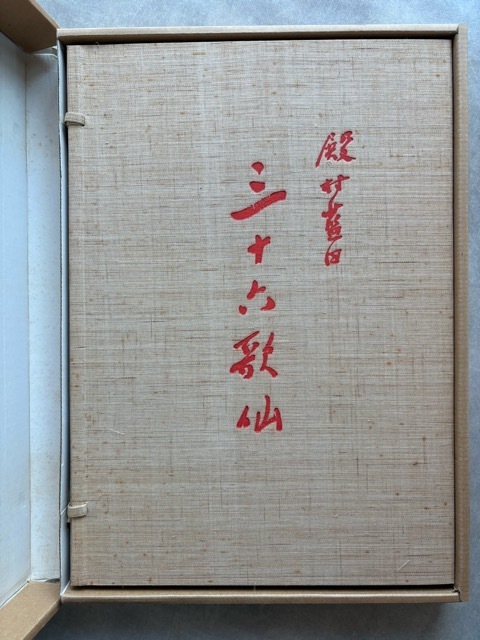 殿村藍田
三十六歌仙